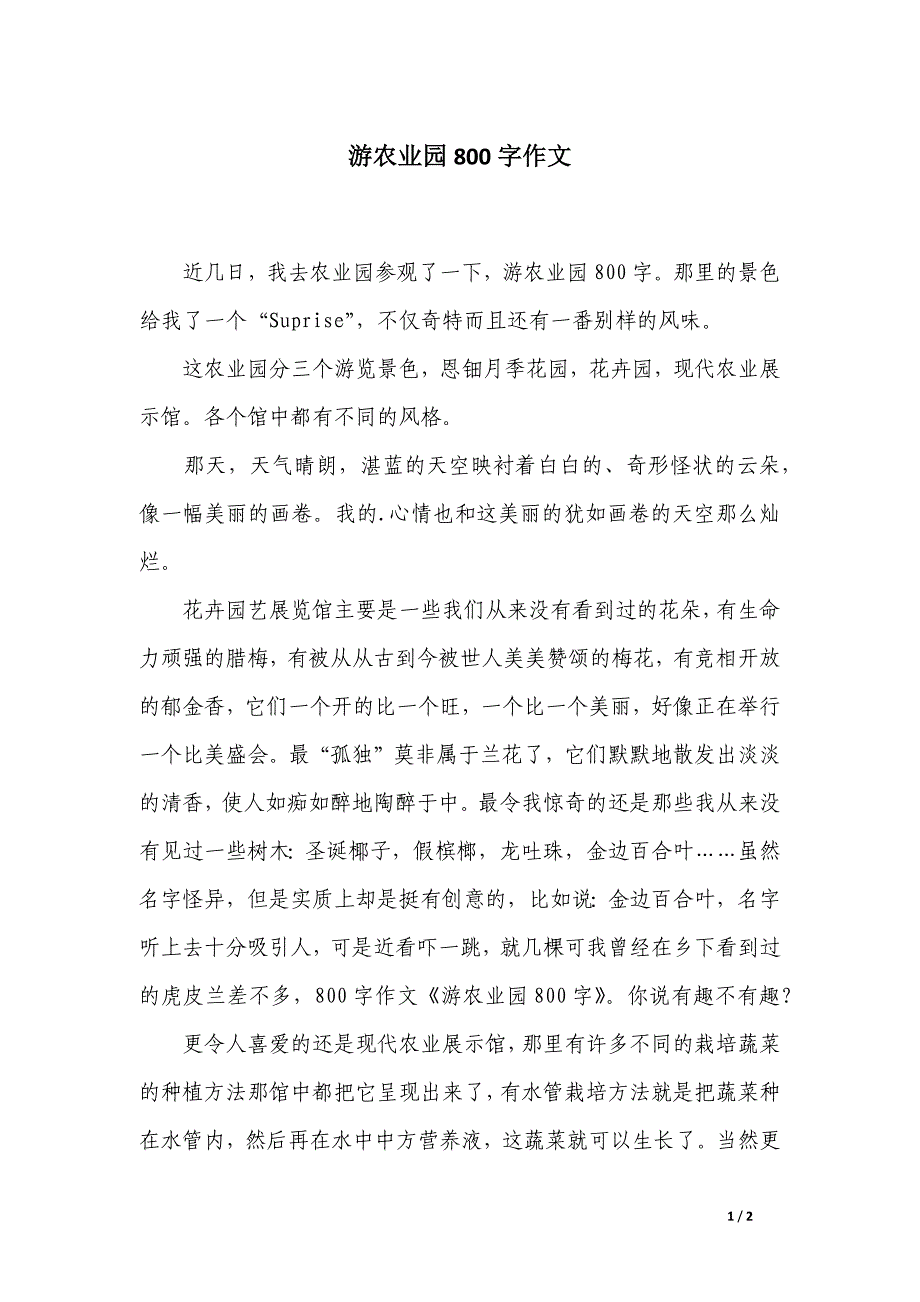 游农业园 800 字作文
近几日，我去农业园参观了一下，游农业园 800 字。那里的景色
给我了一个“Suprise”，不仅奇特而且还有一番别样的风味。
这农业园分三个游览景色，恩钿月季花园，花卉园，现代农业展
示馆。各个馆中都有不同的风格。
那天，天气晴朗，湛蓝的天空映衬着白白的、奇形怪状的云朵，
像一幅美丽的画卷。我的.心情也和这美丽的犹如画卷的天空那么灿
烂。
花卉园艺展览馆主要是一些我们从来没有看到过的花朵，有生命
力顽强的腊梅，有被从从古到今被世人美美赞颂的梅花，有竞相开放
的郁金香，它们一个开的比一个旺，一个比一个美丽，好像正在举行
一个比美盛会。最“孤独”莫非属于兰花了，它们默默地散发出淡淡
的清香，使人如痴如醉地陶醉于中。最令我惊奇的还是那些我从来没
有见过一些树木：圣诞椰子，假槟榔，龙吐珠，金边百合叶……虽然
名字怪异，但是实质上却是挺有创意的，比如说：金边百合叶，名字
听上去十分吸引人，可是近看吓一跳，就几棵可我曾经在乡下看到过
的虎皮兰差不多，800 字作文《游农业园 800 字》。你说有趣不有趣？
更令人喜爱的还是现代农业展示馆，那里有许多不同的栽培蔬菜
的种植方法那馆中都把它呈现出来了，有水管栽培方法就是把蔬菜种
在水管内，然后再在水中中方营养液，这蔬菜就可以生长了。当然更
1 / 2